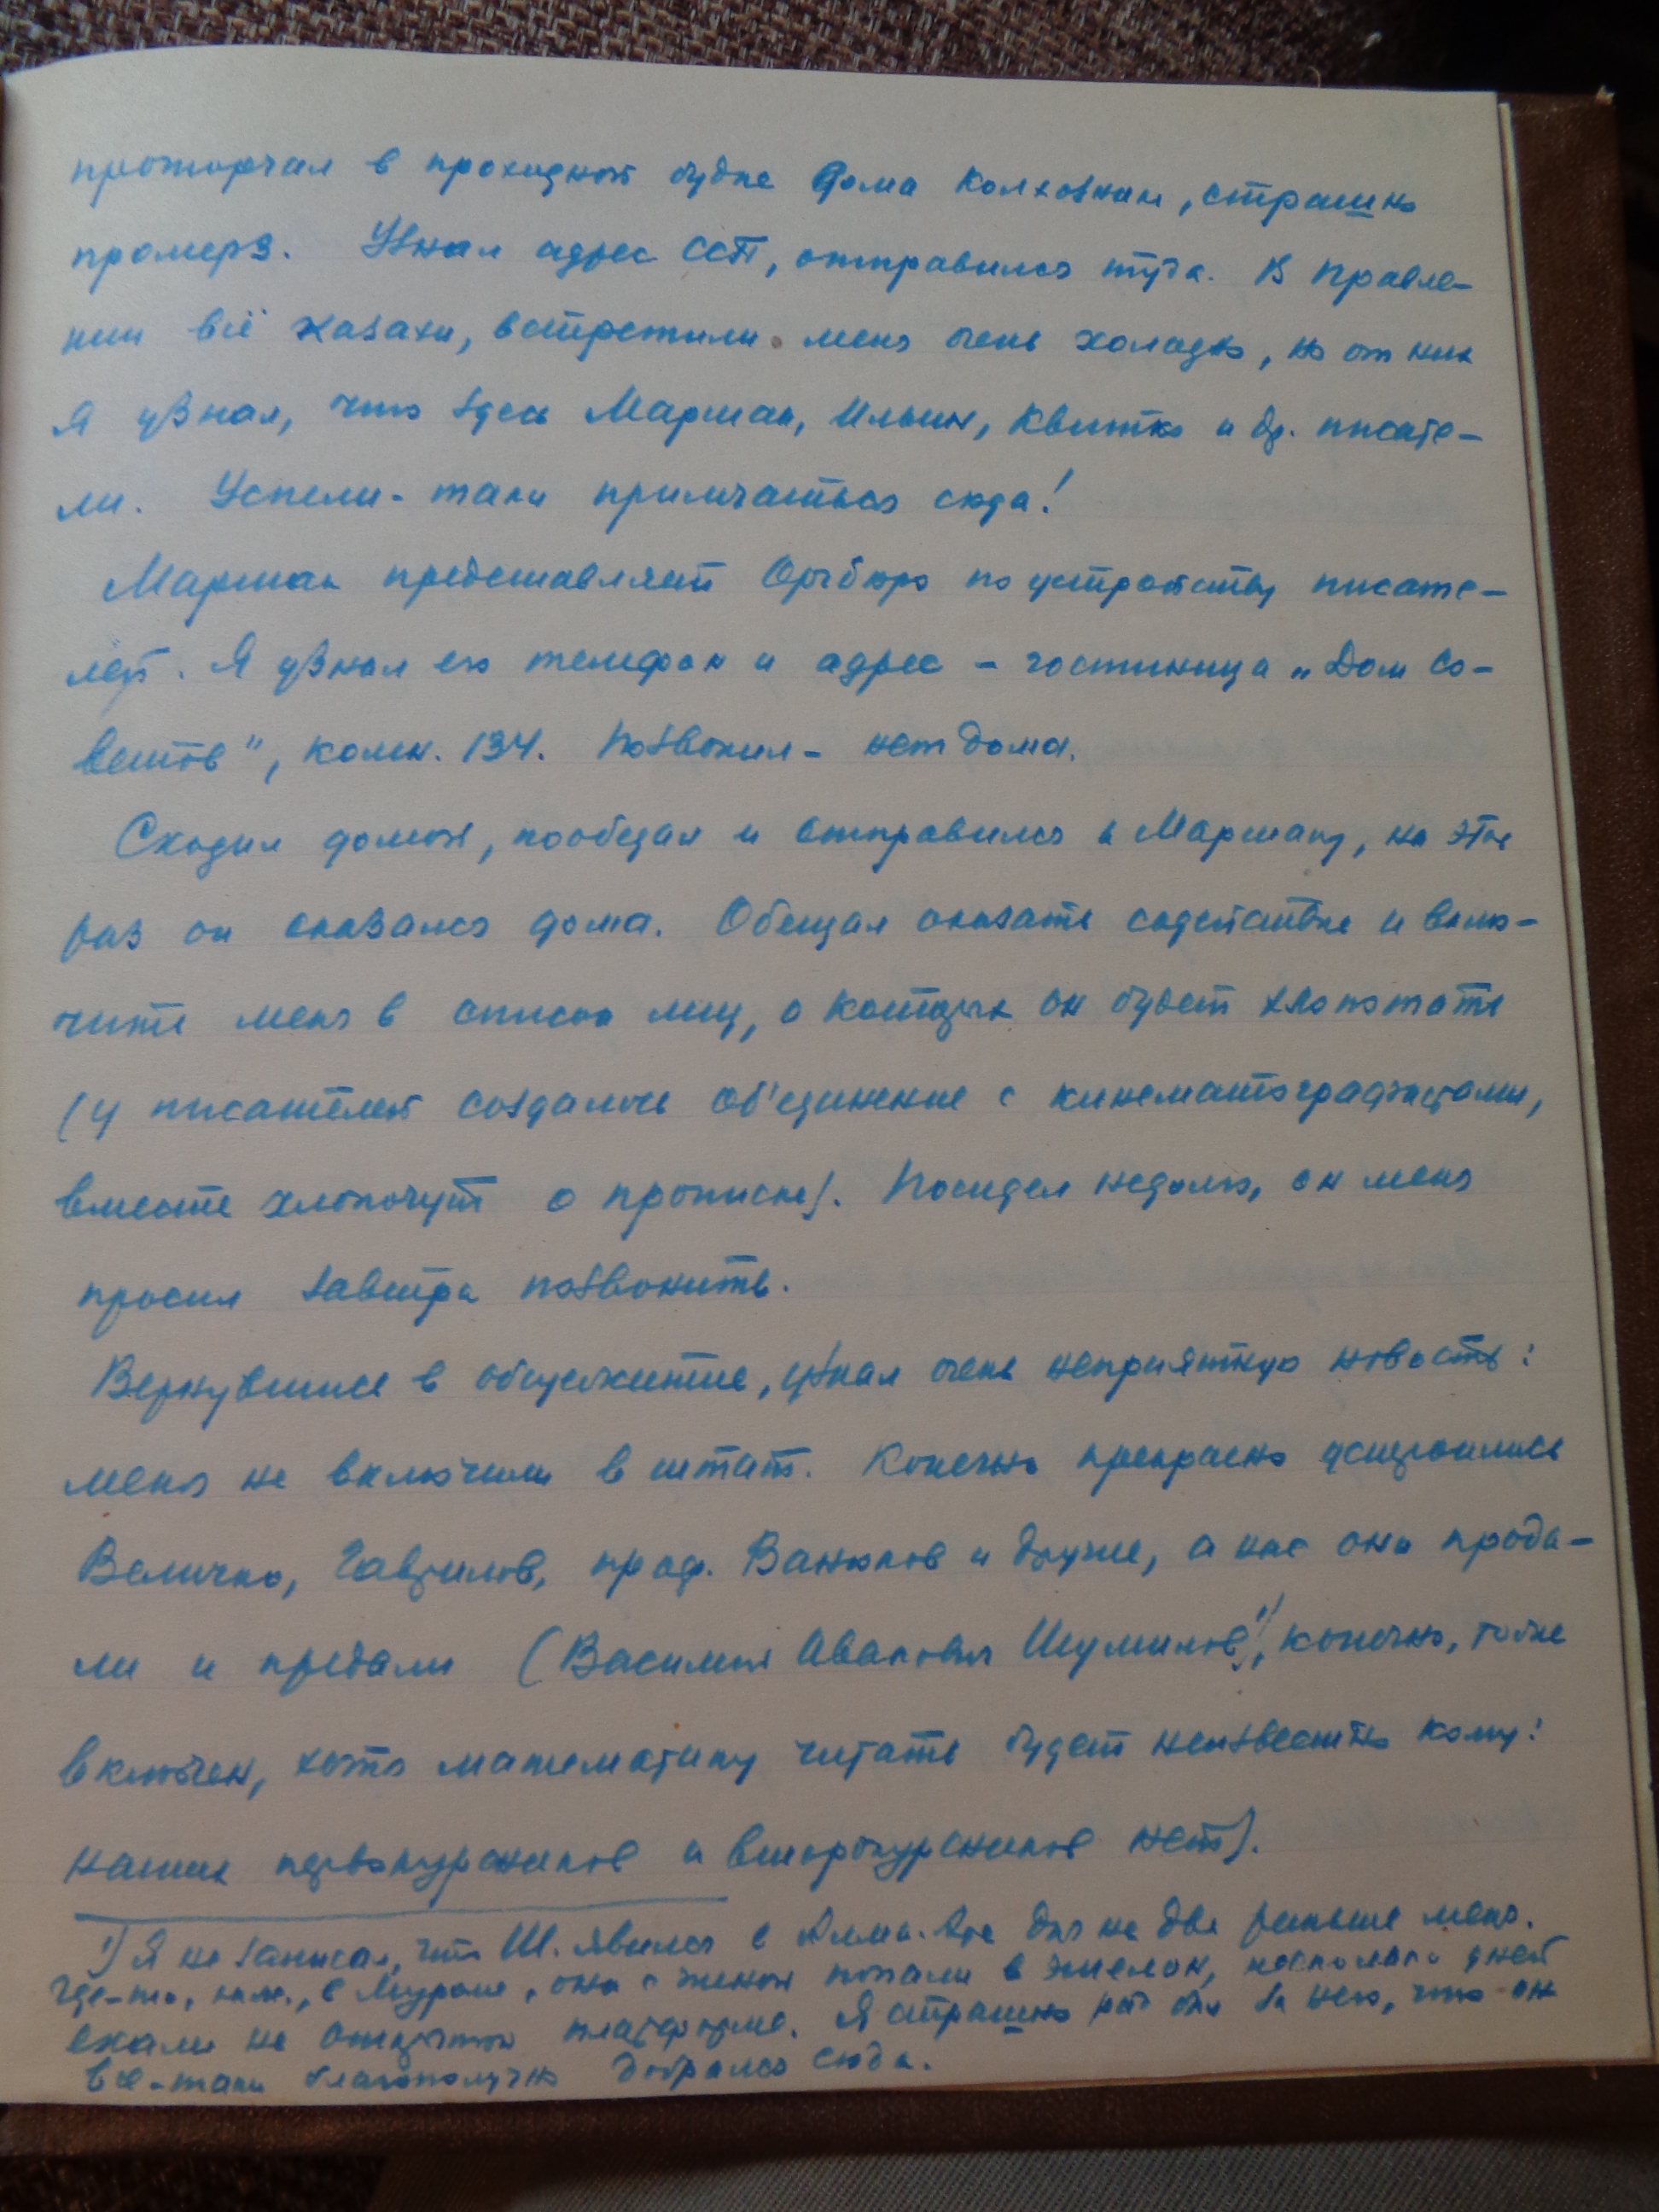 проторчал в проходной будке Дома Колхозник, страшно
промерз. Узнал адрес ССП, отправился туда. В Правле-
нии всё казахи, встретили меня очень холодно, но от них
я узнал, что здесь Маршак, Ильин, Квитко и др. писате-
ли. Успели-таки примчаться сюда!
Маршак представляет Оргбюро по устройству писате-
лей. Я узнал его телефон и адрес – гостиница „Дом Со-
ветов", комн. 134. Позвонил – нет дома.
Сходил домой, пообедал и отправился к Маршаку, на этот
раз он оказался дома. Обещал оказать содействие и вклю-
чить меня в список лиц, о которых он будет хлопотать
(у писателей создалось об'единение с кинематографистами,
вместе хлопочут о прописке). Посидел недолго, он меня
просил завтра позвонить.
Вернувшись в общежитие, узнал очень неприятную новость:
меня не включили в штат. Конечно прекрасно устроились
Величко, Гаврилов, проф. Ванюков и другие, а нас они прода-
ли и предали (Василий Иванович Шумилов¹⁾, конечно, тоже
включен, хотя математику читать будет неизвестно кому:
наших первокурсников и второкурсников нет).
¹⁾ Я не записал, что Ш. явился в Алма-Ата дня на два раньше меня.
Где-то, в Муроме, они с женой попали в эшелон, несколько дней
ехали на открытой платформе. Я страшно рад был за него, что он
всё-таки благополучно добрался сюда.